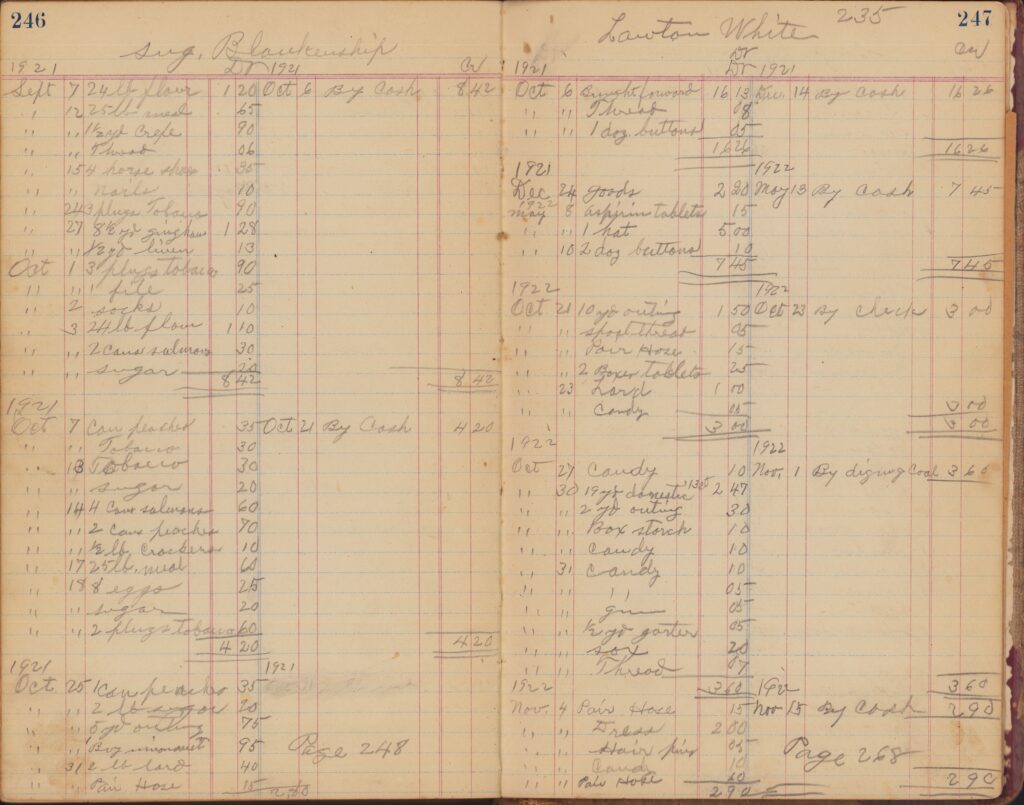 246
Blankenship
1921 Dr 1921 Cr
Sept 7 24 lb flour 1 20 Oct 6 By Cash 8 42
" 12 25 lb meal 65
" " 1½ yd Crepe 90
" " Thread 06
" 15 4 horse shoes 35
" " nails 10
" 24 3 plugs Tobacco 90
" 27 8½ yd gingham 1 28
" " ½ yd linen 13
Oct 1 3 plugs tobacco 90
" " 1 file 25
" 2 socks 10
" 3 24 lb flour 1 10
" " 2 cans salmons 30
" " sugar 20
8 42 8 42
1921
Oct 7 Can peaches 35 Oct 21 By Cash 4 20
" " Tobacco 30
" 13 Tobacco 30
" " sugar 20
" 14 4 Cans salmons 60
" " 2 cans peaches 70
" " ½ lb. Crackers 10
" 17 25 lb. meal 60
" 18 8 eggs 25
" " sugar 20
" " 2 plugs tobacco 60
4 20 4 20
1921 1921
Oct 25 1 can peaches 35
" " 2 lb sugar 20
" " 5 yd outing 75
" " 95 Page 248
" 31 2 lb lard 40
" " Pair Hose 15
Lawton White 235
247
Dr
1921 Dr 1921 Cr
Oct 6 Brought forward 16 13 Dec 14 By Cash 16 26
" " Thread 08
" " 1 doz buttons 05
16 26 16 26
1921 1922
Dec 24 goods 2 20 May 13 By Cash 7 45
1922
May 8 aspirin tablets 15
" " 1 hat 5 00
" 10 2 doz buttons 10
7 45 7 45
1922 1922
Oct 21 10 yd outing 1 50 Oct 23 By check 3 00
" " spool thread 05
" " Pair Hose 15
" " 2 Boxes tablets 25
" 23 Lard 1 00
" " Candy 05 3 00
3 00 3 00
1922 1922
Oct 27 Candy 10 Nov. 1 By diging Coal 3 60
" 30 19 yd domestic 2 47
" " 2 yd outing 30
" " Box starch 10
" " Candy 10
" 31 Candy 10
" " " 05
" " gum 05
" " ½ yd garter 05
" " sox 20
" " Thread 07
1922 3 60 3 60
Nov. 4 Pair Hose 15 Nov 15 By Cash 2 90
" " Dress 2 00
" " Hair pins 05 Page 268
" " Candy 10
" " Pair Hose 60 2 90
2 90